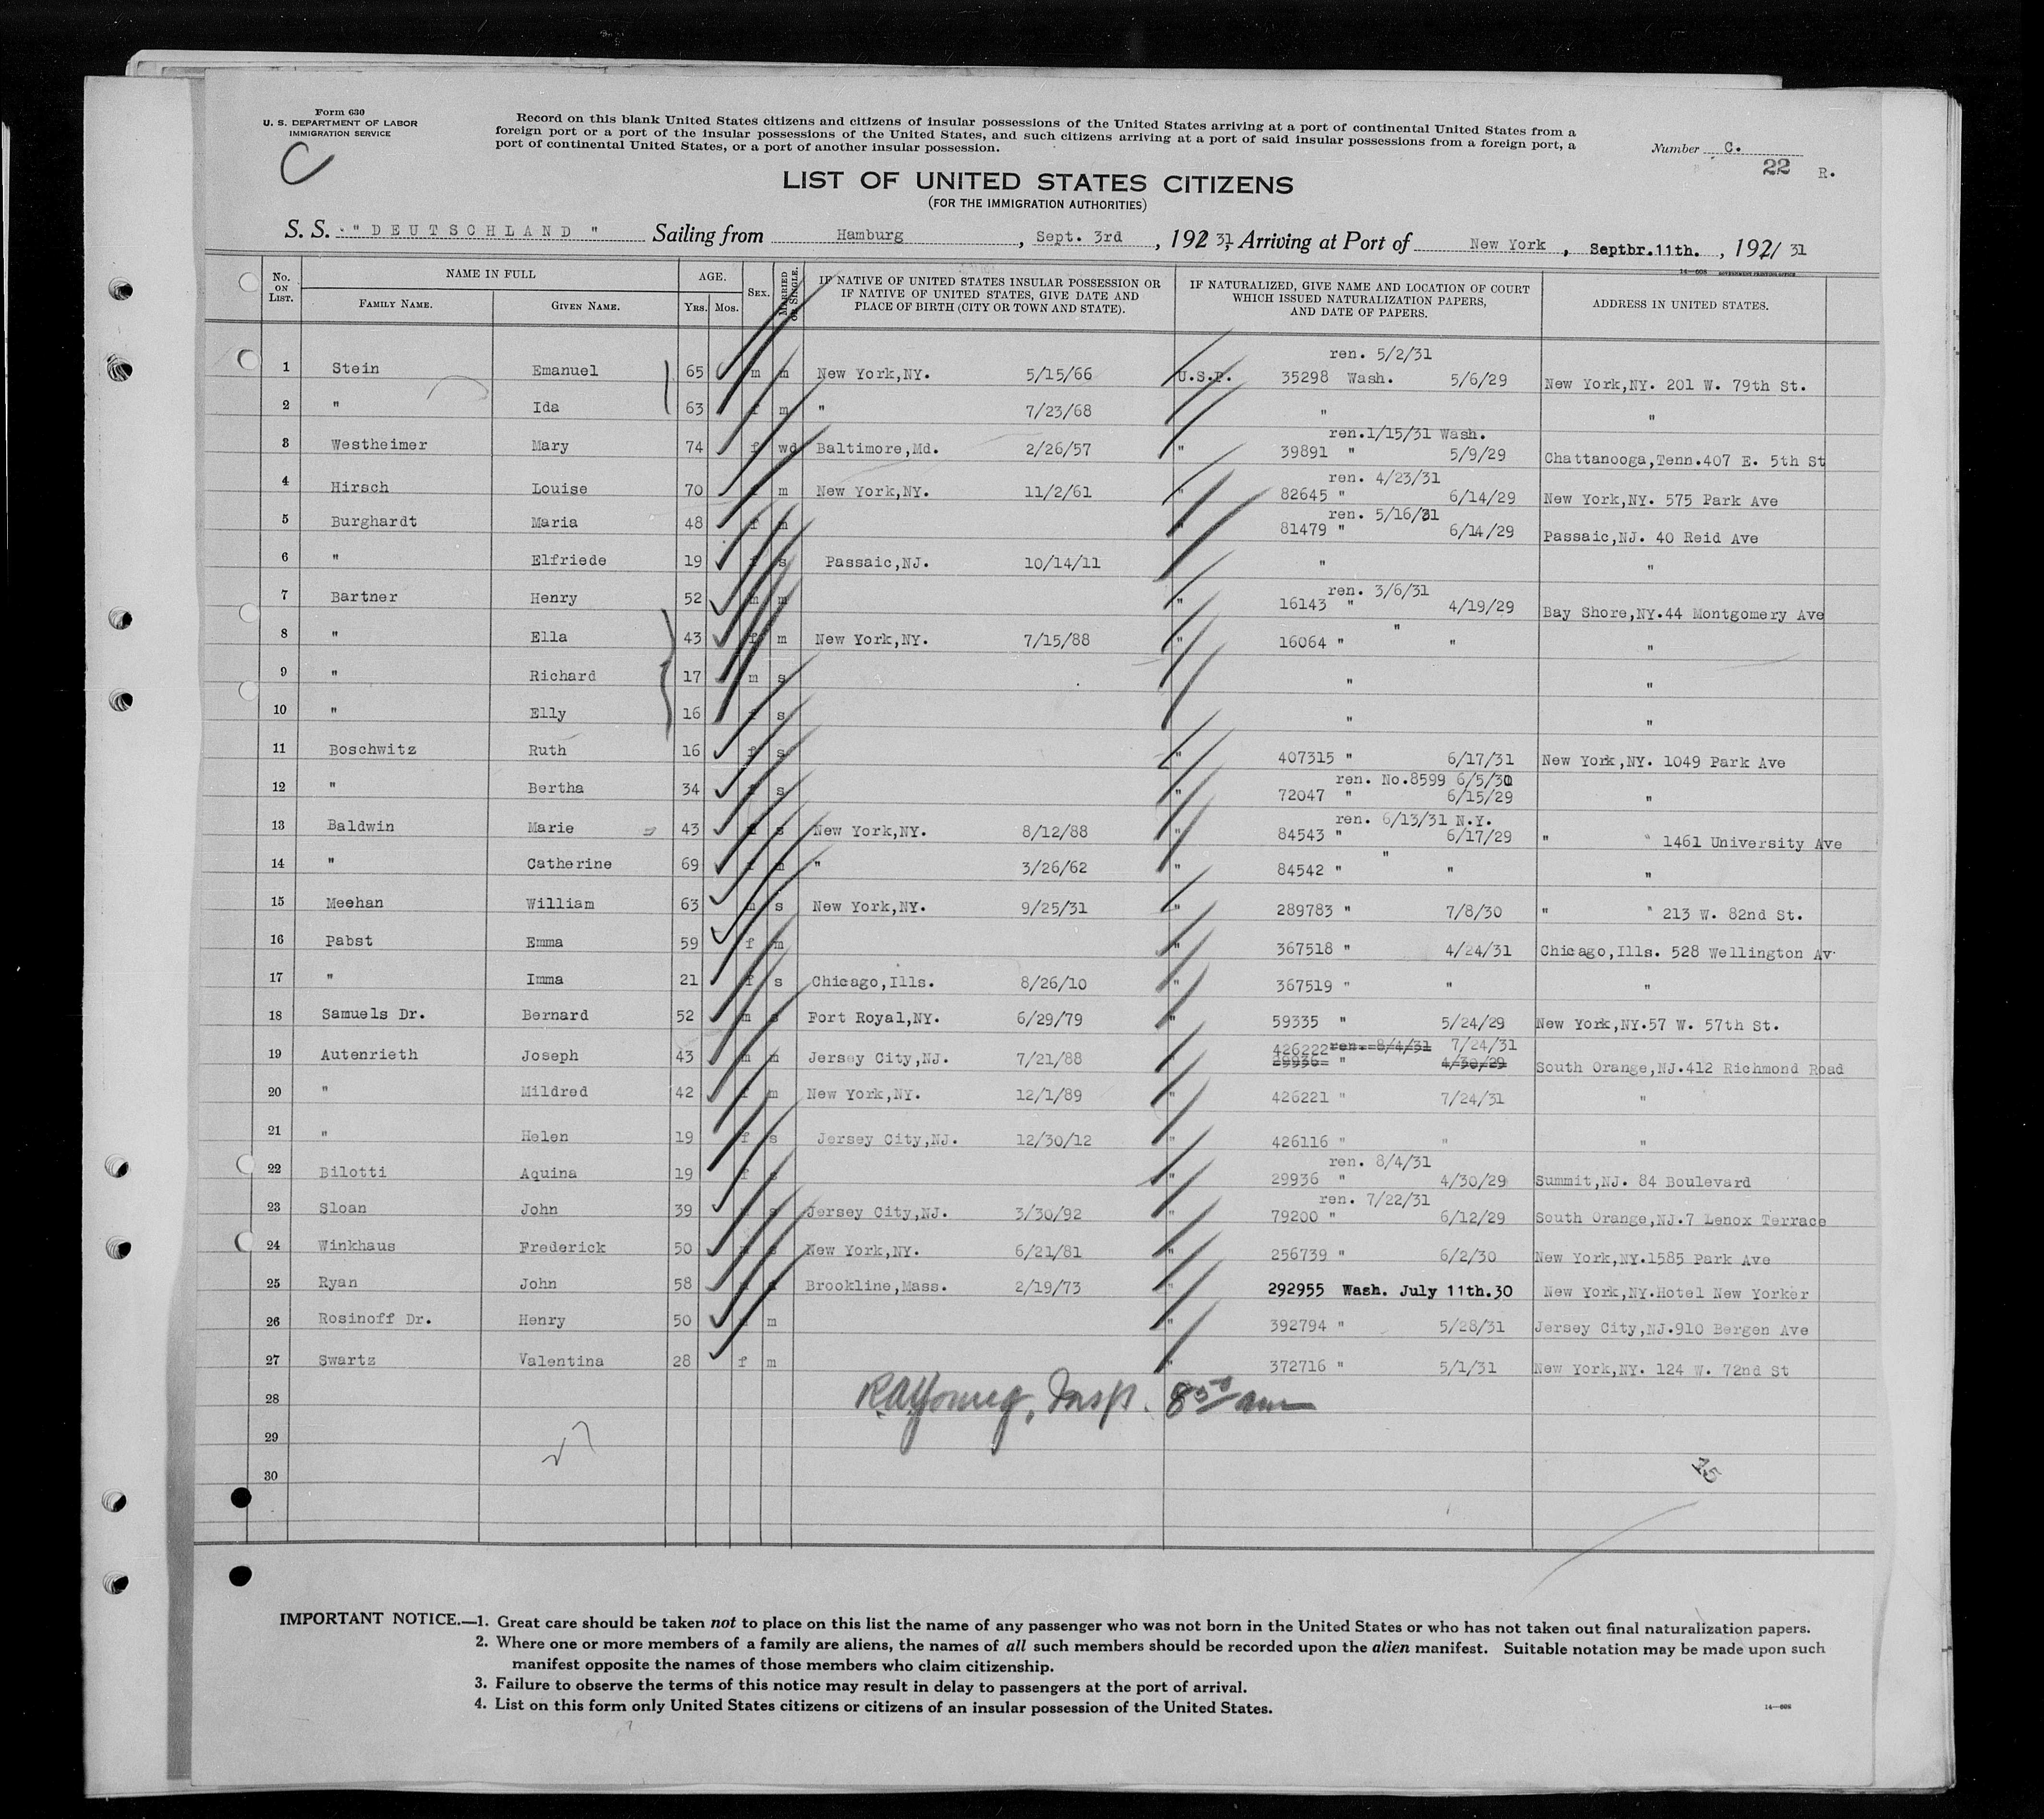 Form 630
U. S. DEPARTMENT OF LABOR
IMMIGRATION SERVICE
C
Record on this blank United States citizens and citizens of insular possessions of the United States arriving at a port of continental United States from a
foreign port or a port of the insular possessions of the United States, and such citizens arriving at a port of said insular possessions from a foreign port, a
port of continental United States, or a port of another insular possession.
Number C.
22 R.
LIST OF UNITED STATES CITIZENS
(FOR THE IMMIGRATION AUTHORITIES)
S. S. "DEUTSCHLAND" Sailing from Hamburg, Sept. 3rd, 192 31, Arriving at Port of New York, Septbr.11th., 192 31
14—608 GOVERNMENT PRINTING OFFICE
No. ON LIST. NAME IN FULL FAMILY NAME. GIVEN NAME. AGE. YRS. MOS. SEX. MARRIED OR SINGLE. IF NATIVE OF UNITED STATES INSULAR POSSESSION OR IF NATIVE OF UNITED STATES, GIVE DATE AND PLACE OF BIRTH (CITY OR TOWN AND STATE). IF NATURALIZED, GIVE NAME AND LOCATION OF COURT WHICH ISSUED NATURALIZATION PAPERS, AND DATE OF PAPERS. ADDRESS IN UNITED STATES.
ren. 5/2/31
1 Stein Emanuel 65 m m New York,NY. 5/15/66 U.S.P. 35298 Wash. 5/6/29 New York,NY. 201 W. 79th St.
2 " Ida 63 f m " 7/23/68 " "
ren.1/15/31 Wash.
3 Westheimer Mary 74 f wd Baltimore,Md. 2/26/57 " 39891 " 5/9/29 Chattanooga,Tenn.407 E. 5th St
ren. 4/23/31
4 Hirsch Louise 70 f m New York,NY. 11/2/61 " 82645 " 6/14/29 New York,NY. 575 Park Ave
ren. 5/16/31
5 Burghardt Maria 48 f m " 81479 " 6/14/29 Passaic,NJ. 40 Reid Ave
6 " Elfriede 19 f s Passaic,NJ. 10/14/11 " "
ren. 3/6/31
7 Bartner Henry 52 m m " 16143 " 4/19/29 Bay Shore,NY.44 Montgomery Ave
8 " Ella 43 f m New York,NY. 7/15/88 " 16064 " " " "
9 " Richard 17 m s " "
10 " Elly 16 f s " "
11 Boschwitz Ruth 16 f s " 407315 " 6/17/31 New York,NY. 1049 Park Ave
ren. No.8599 6/5/30
12 " Bertha 34 f s " 72047 " 6/15/29 "
ren. 6/13/31 N.Y.
13 Baldwin Marie 43 f s New York,NY. 8/12/88 " 84543 " 6/17/29 " " 1461 University Ave
14 " Catherine 69 f m " 3/26/62 " 84542 " " " "
15 Meehan William 63 m s New York,NY. 9/25/31 " 289783 " 7/8/30 " " 213 W. 82nd St.
16 Pabst Emma 59 f m " 367518 " 4/24/31 Chicago,Ills. 528 Wellington Av.
17 " Imma 21 f s Chicago,Ills. 8/26/10 " 367519 " " "
18 Samuels Dr. Bernard 52 m s Fort Royal,NY. 6/29/79 " 59335 " 5/24/29 New York,NY.57 W. 57th St.
426222 ren. 8/4/31 7/24/31
19 Autenrieth Joseph 43 m m Jersey City,NJ. 7/21/88 " 29936 " 4/30/29 South Orange,NJ.412 Richmond Road
20 " Mildred 42 f m New York,NY. 12/1/89 " 426221 " 7/24/31 "
21 " Helen 19 f s Jersey City,NJ. 12/30/12 " 426116 " " "
ren. 8/4/31
22 Bilotti Aquina 19 f s " 29936 " 4/30/29 Summit,NJ. 84 Boulevard
ren. 7/22/31
23 Sloan John 39 s Jersey City,NJ. 3/30/92 " 79200 " 6/12/29 South Orange,NJ.7 Lenox Terrace
24 Winkhaus Frederick 50 s New York,NY. 6/21/81 " 256739 " 6/2/30 New York,NY.1585 Park Ave
25 Ryan John 58 s Brookline,Mass. 2/19/73 " 292955 Wash. July 11th.30 New York,NY.Hotel New Yorker
26 Rosinoff Dr. Henry 50 m " 392794 " 5/28/31 Jersey City,NJ.910 Bergen Ave
27 Swartz Valentina 28 f m " 372716 " 5/1/31 New York,NY. 124 W. 72nd St
28 RAYoung, Insp. 8 50 am
29 27
30
15
IMPORTANT NOTICE.—1. Great care should be taken not to place on this list the name of any passenger who was not born in the United States or who has not taken out final naturalization papers.
2. Where one or more members of a family are aliens, the names of all such members should be recorded upon the alien manifest. Suitable notation may be made upon such
manifest opposite the names of those members who claim citizenship.
3. Failure to observe the terms of this notice may result in delay to passengers at the port of arrival.
4. List on this form only United States citizens or citizens of an insular possession of the United States.
14—608